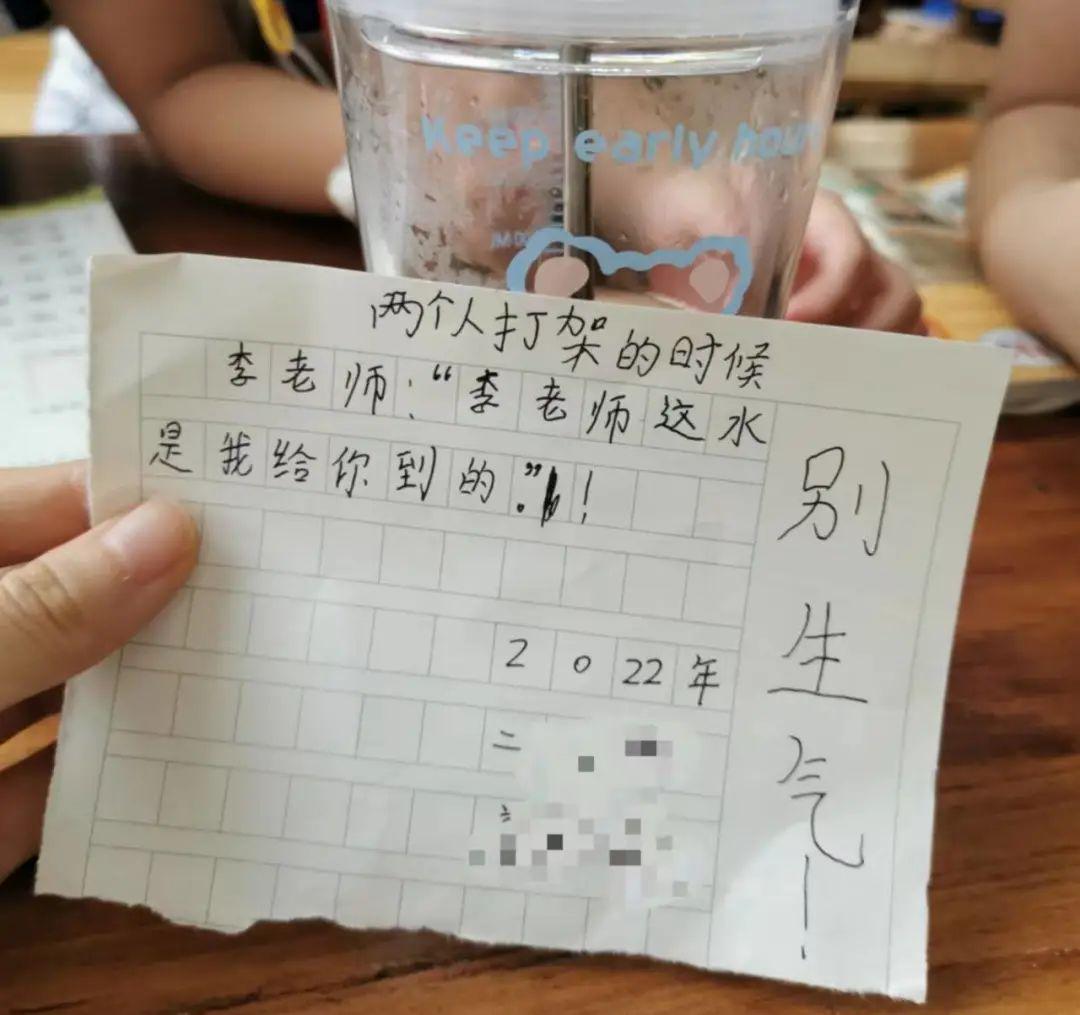 Keep early hour
两个人打架的时候
李老师:“李老师这水
是我给你到的。”!
2022年
二
别生气!